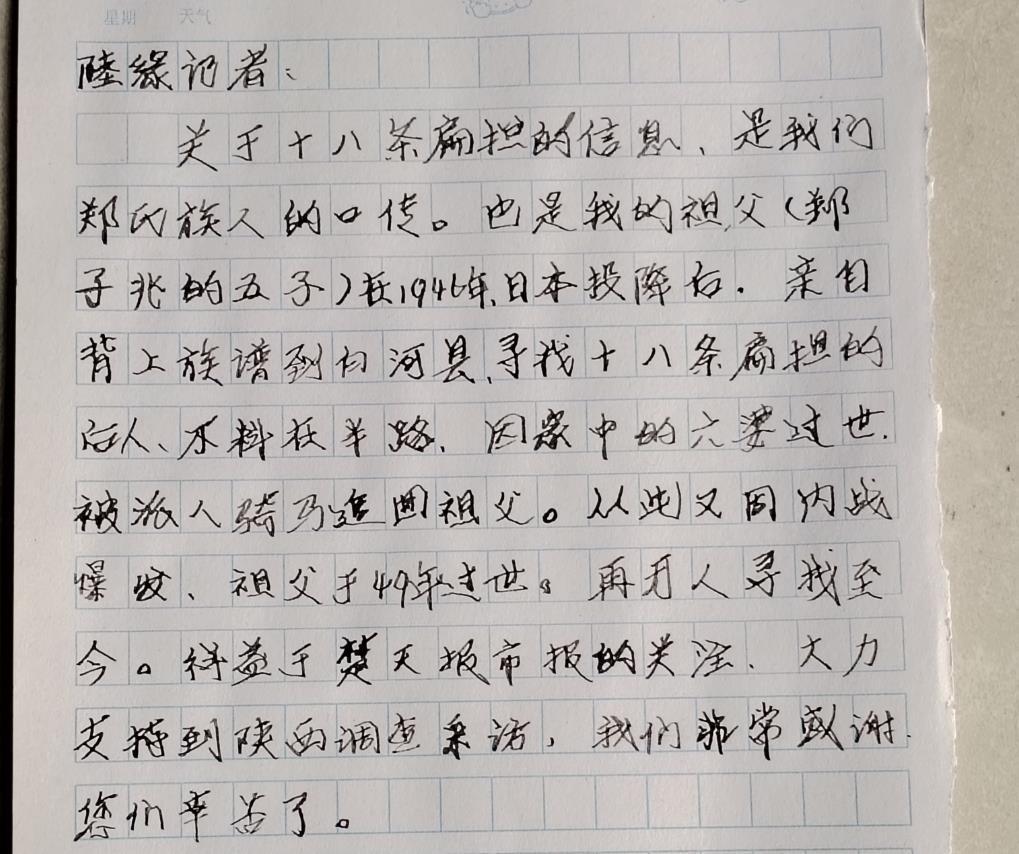 星期 天气
陸緣记者:
关于十八条扁担的信息、是我们
郑氏族人的口传。也是我的祖父(郑
子兆的五子)在1946年,日本投降后.亲自
背上族谱到白河县,寻找十八条扁担的
后人、不料在半路.因家中的六婆过世.
被派人骑马追回祖父。从此又因内战
爆发、祖父于49年过世。再无人寻找至
今。得益于楚天报市报的关注.大力
支持到陕西调查采访,我们非常感谢.
您们辛苦了。